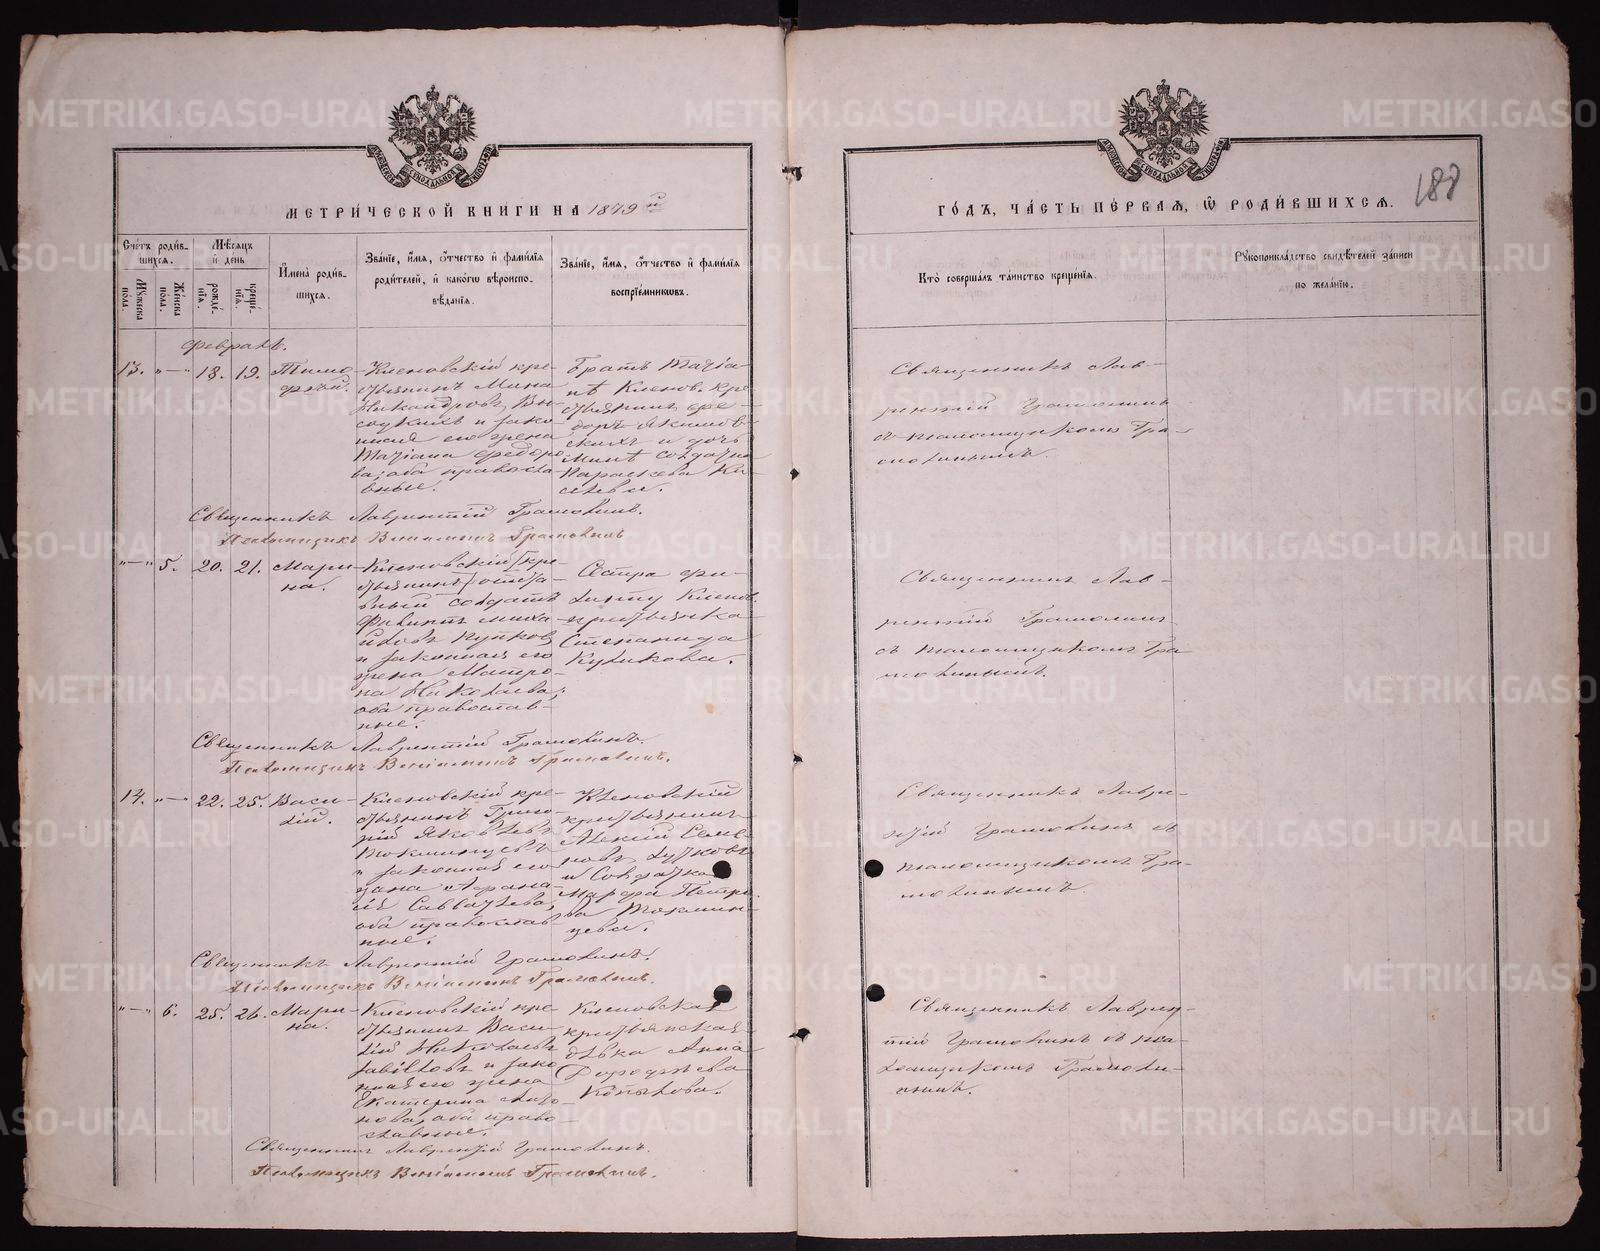 МЕТРИ́ЧЕСКОЙ КНИГИ НА 1879 й
Сче́тъ роди́в-
шихся.
Му́жеска
по́ла.
Же́нска
по́ла.
Мѣ́сяцъ
и де́нь
рожде́-
нїѧ.
креще́-
нїѧ.
И҆мена̀ роди́в-
шихся.
Зва́нїе, и҆́мѧ, ѻ҆́тчество и҆ фамі́лїѧ
роди́телей, и҆ како́гѡ вѣроиспо-
вѣ́данїѧ.
Зва́нїе, и҆́мѧ, ѻ҆́тчество и҆ фамі́лїѧ
воспрїе́мникѡвъ.
февраль.
13. "—" 18. 19. Тимо-
фей.
Кленовскій кре-
стьянинъ Мина
Никандровъ Вы-
соцкихъ и зако-
нная его жена
Татіана Федоро-
ва; оба правосла-
вные.
Братъ Татіа-
нѣ Кленов. кре-
стьянинъ Фе-
доръ Якимов-
скихъ и дочь
Минѣ солдатка
Параскева Ки-
селева.
Священникъ Лаврентій Грамолинъ.
Псаломщикъ Веніаминъ Грамолинъ
"—" 5. 20. 21. Мари-
на.
Кленовскій [кре-
стьянинъ] отста-
вный солдатъ
Филиппъ Миха-
йловъ
и законная его
жена Матро-
на Николаева;
оба православ-
ные.
Сестра Фи-
липпу Кленов.
крестьянка
Степанида
Куликова.
Священникъ Лаврентій Грамолинъ.
Псаломщикъ Веніаминъ Грамолинъ.
14. "—" 22. 25. Васи-
лій.
Кленовскій кре-
стьянинъ Григо-
рій Яковлевъ
Токминцевъ
и законная его
жена Афана-
сія Савватѣева,
оба православ-
ные.
Кленовскій
крестьянинъ
Алексій Семе-
новъ
и Солдатка
Марфа Петро-
ва Токмин-
цева.
Священникъ Лаврентій Грамолинъ.
Псаломщикъ Веніаминъ Грамолинъ.
"—" 6. 25. 26. Мари-
на.
Кленовскій кре-
стьянинъ Васи-
лій Николаевъ
и зако-
нная его жена
Екатерина
оба право-
славные.
Кленовская
крестьянская
дѣвка Анна
Дороѳеева
Копылова.
Священникъ Лаврентій Грамолинъ.
Псаломщикъ Веніаминъ Грамолинъ.
ГО́ДЪ, ЧА́СТЬ ПЕ́РВАѦ, Ѽ РОДИ́ВШИХСѦ.
188
Кто̀ соверша́лъ та́инство креще́нїѧ.
Рꙋкоприкла́дство свидѣ́телей за́писи
по жела́нїю.
Священникъ Лав-
рентій Грамолинъ
съ псаломщикомъ Гра-
молинымъ.
Священникъ Лав-
рентій Грамолинъ
съ псаломщикомъ Гра-
молинымъ.
Священникъ Лаврен-
тій Грамолинъ съ
псаломщикомъ Гра-
молинымъ.
Священникъ Лаврен-
тій Грамолинъ съ пса-
ломщикомъ Грамоли-
нымъ.
METRIKI.GASO-URAL.RU